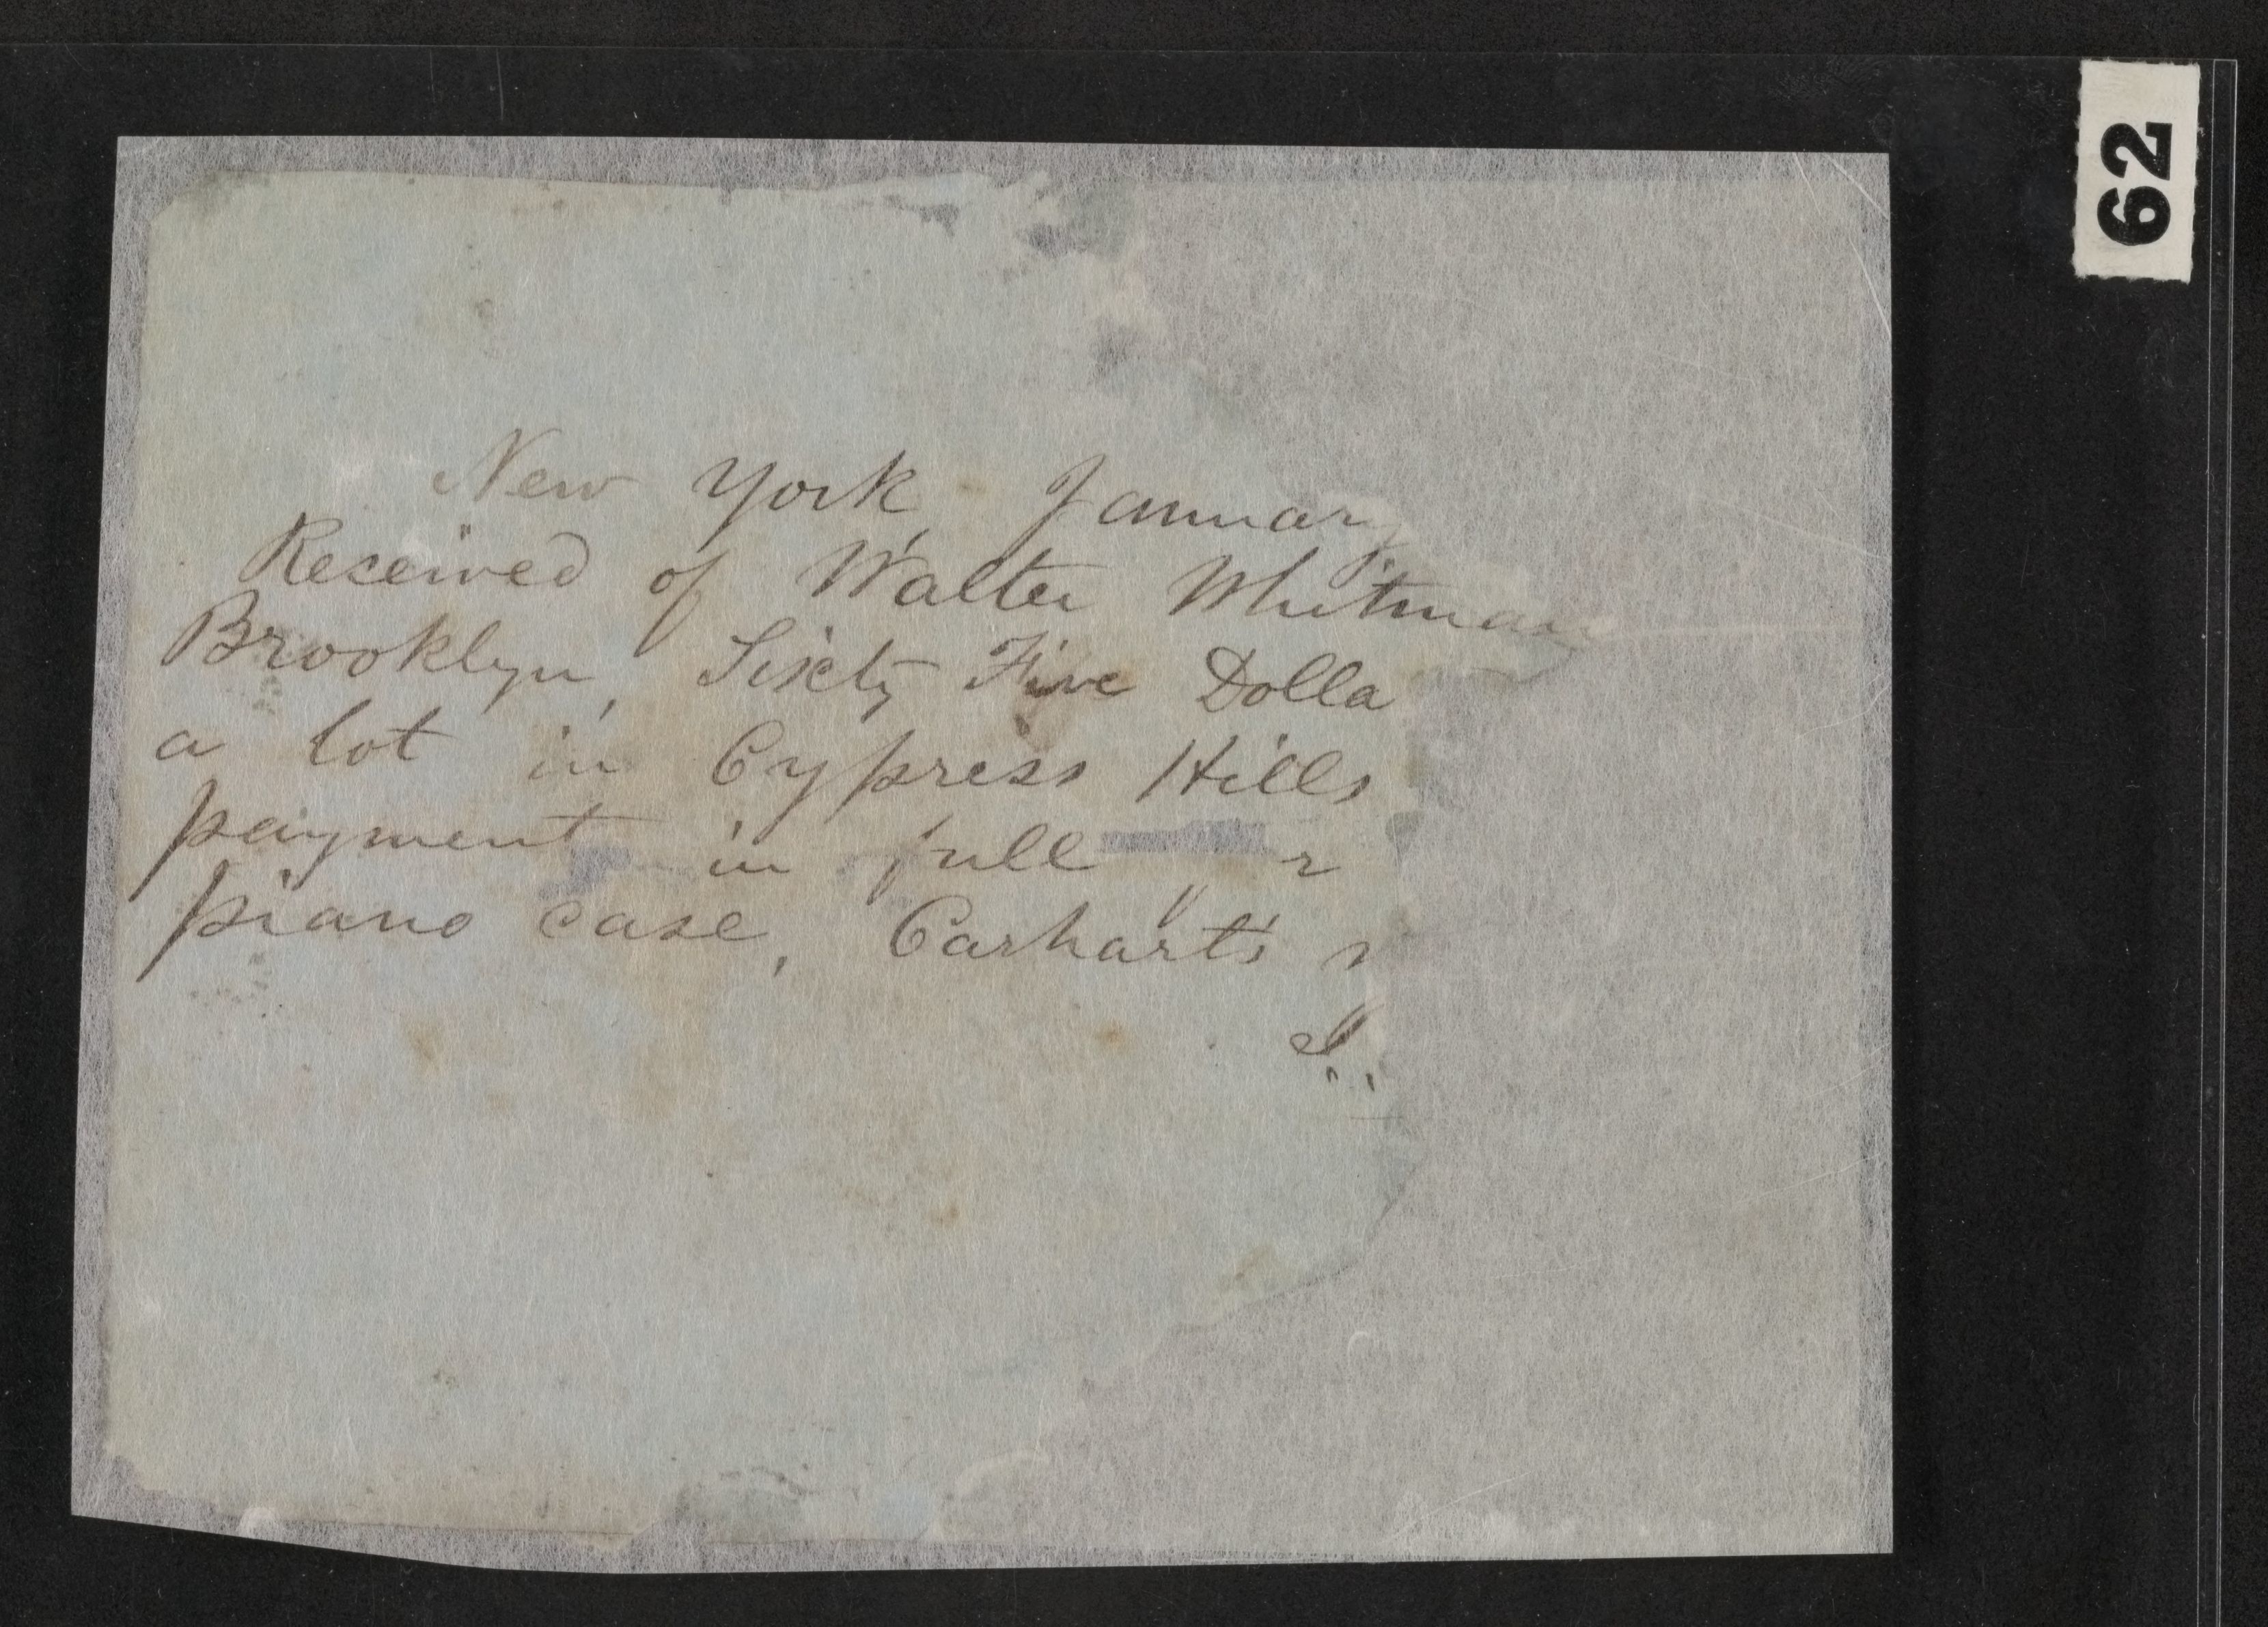 New York, January
Received of Walter Whitman
Brooklyn, Sixty Five Dolla
a lot in Cypress Hills
payment in full
piano case, Carhart's
62